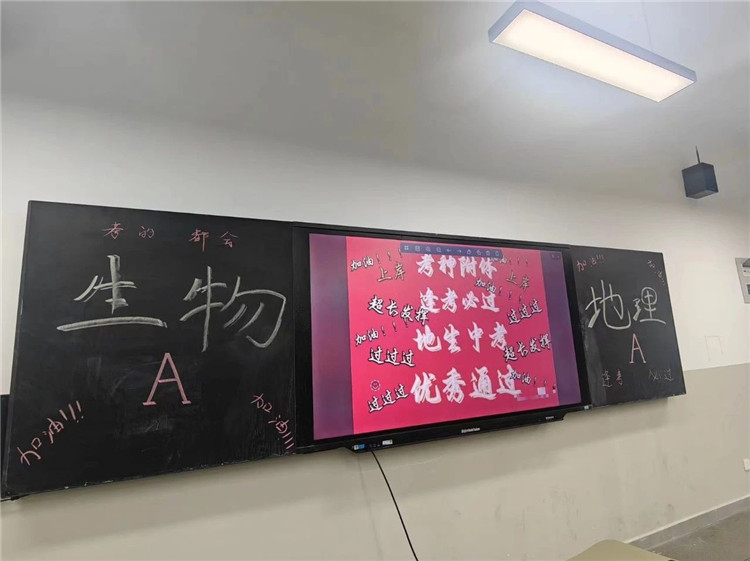 考的 都会
生物
A
加油!!!
加油!!!
考神附体
加油!
上岸
上岸
加油!
逢考必过
超长发挥
过过过
地生中考
加油!
过过过
超长发挥
优秀通过
过过过
加油!
加油!!!
地理
A
逢考 必过